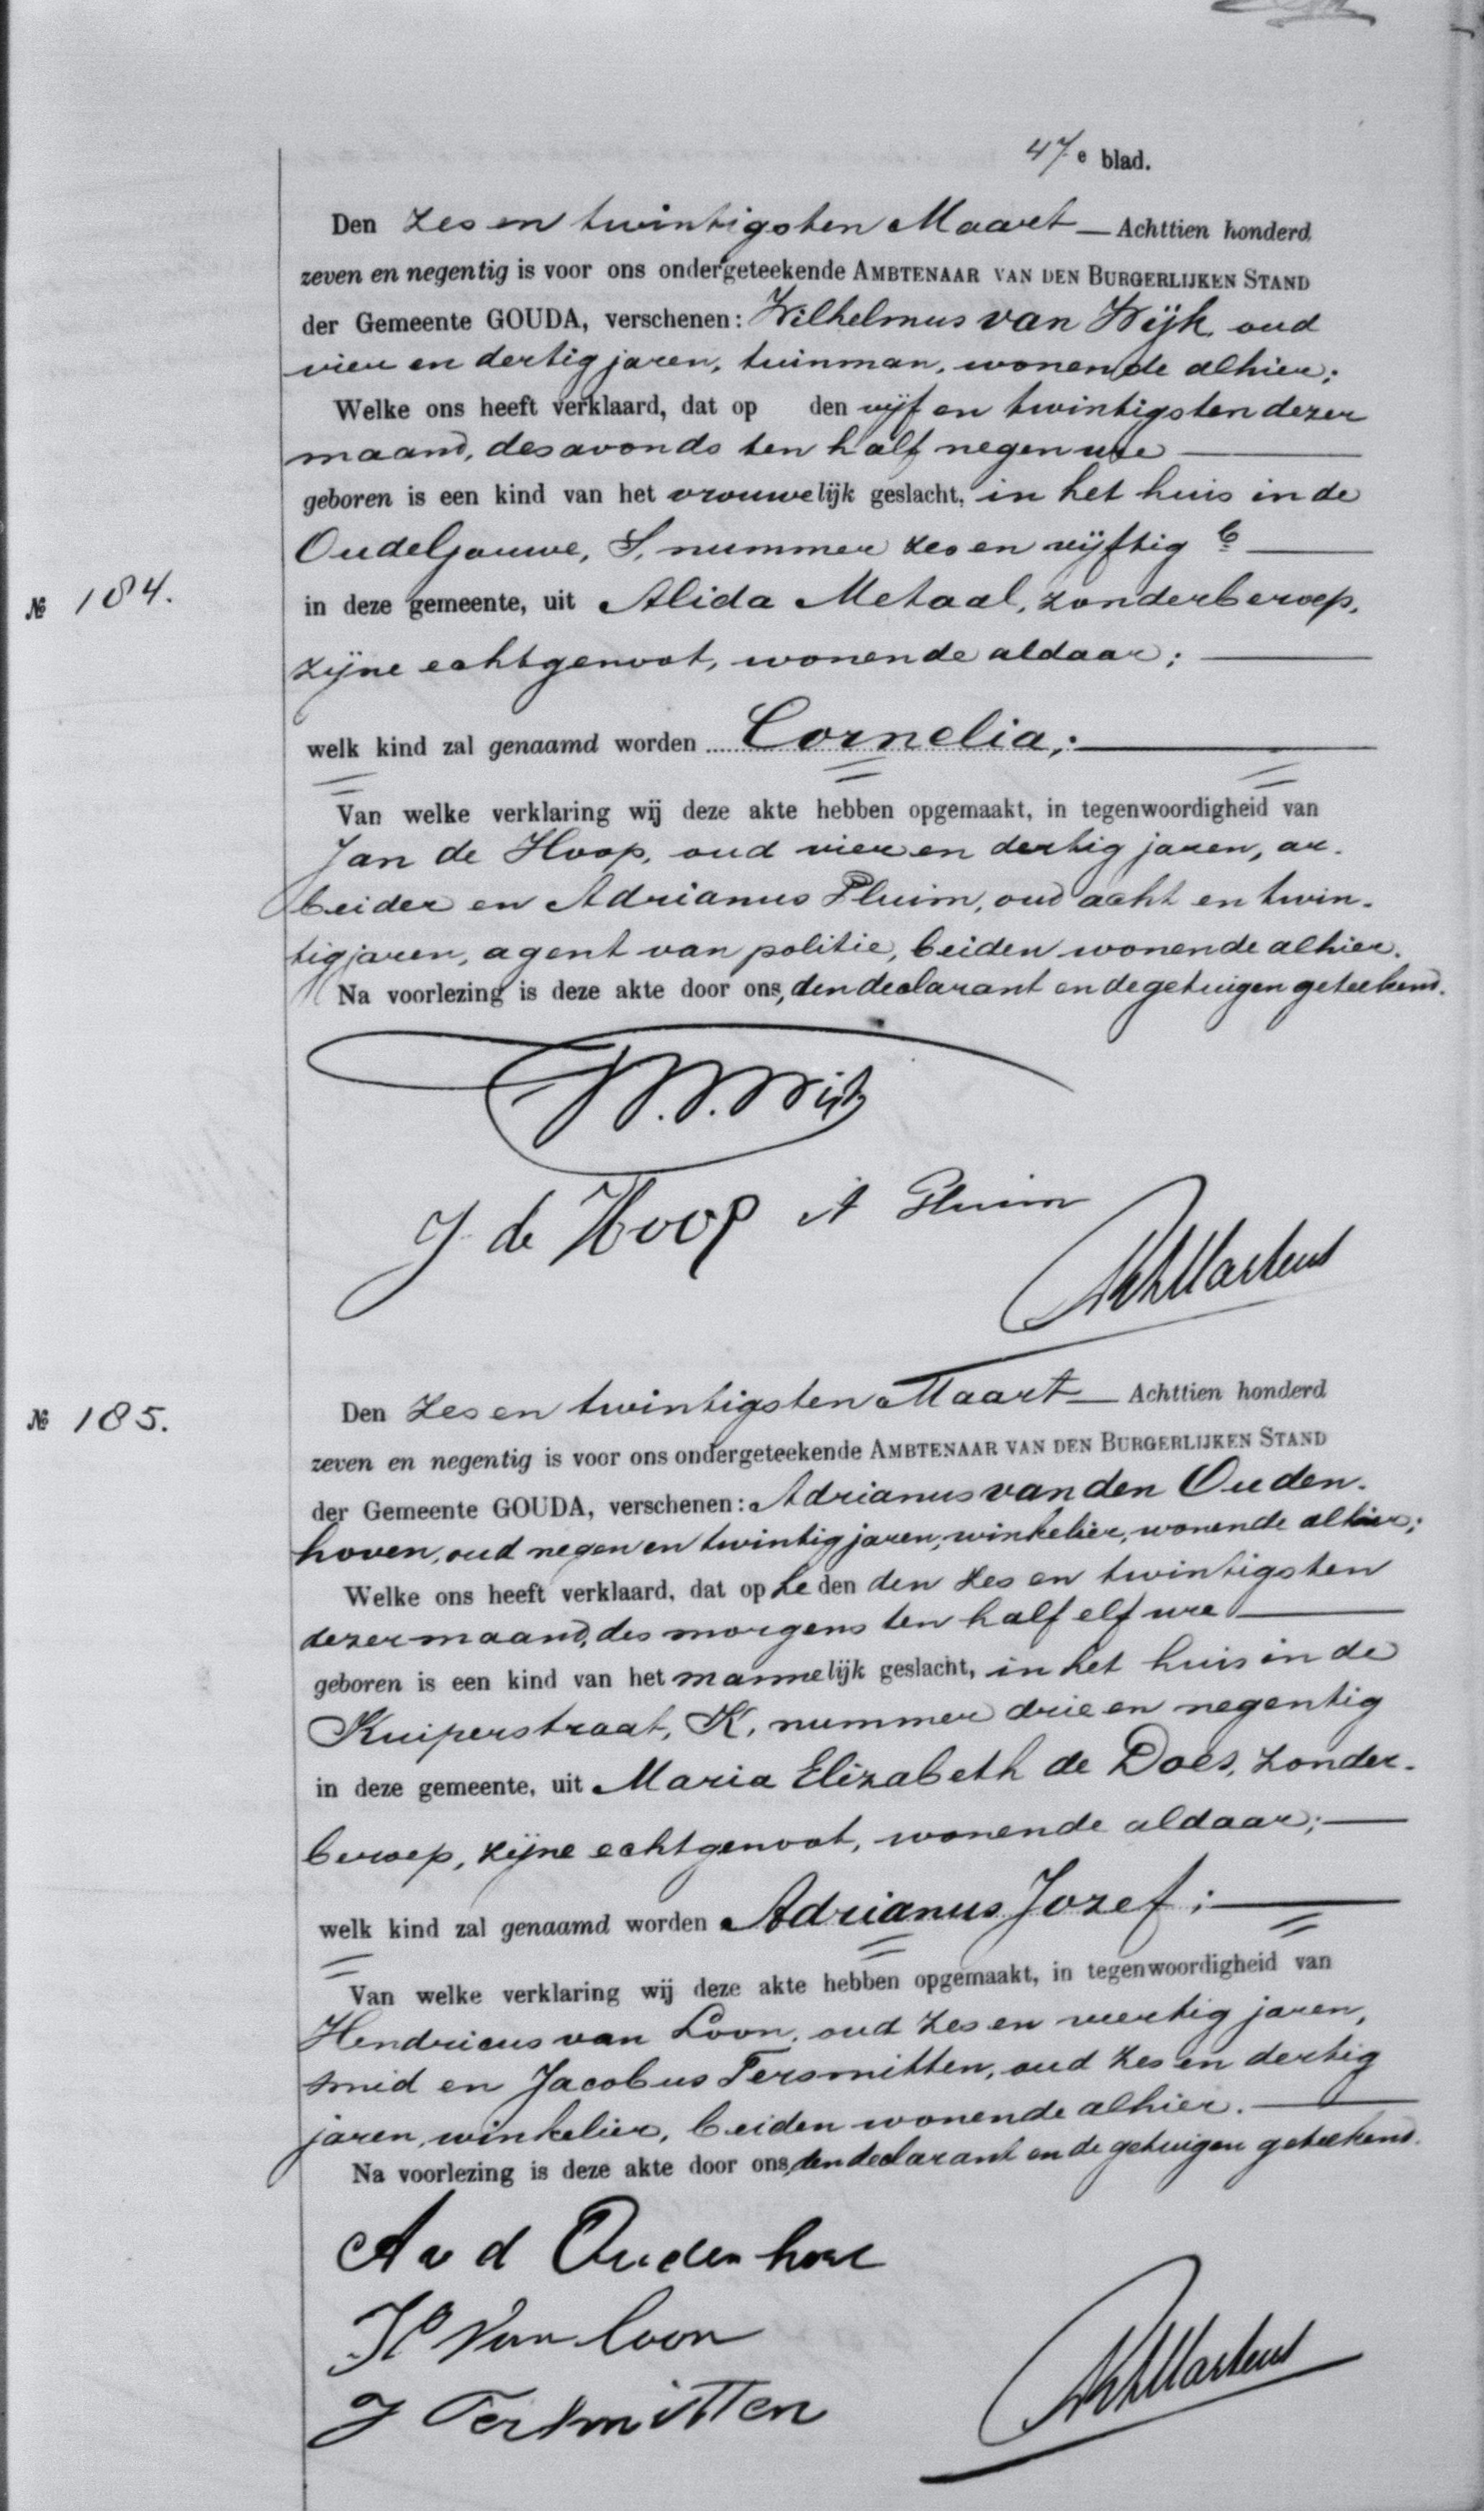 47e blad.
Den zes en twintigsten Maart — Achttien honderd
zeven en negentig is voor ons ondergeteekende AMBTENAAR VAN DEN BURGERLIJKEN STAND
der Gemeente GOUDA, verschenen: Wilhelmus van Wijk, oud
vier en dertig jaren, tuinman, wonende alhier;
Welke ons heeft verklaard, dat op den vijf en twintigsten dezer
maand, des avonds ten half negen ure —
geboren is een kind van het vrouwelijk geslacht, in het huis in de
Oude Gouwe, S, nummer zes en vijftig b —
№ 184.
in deze gemeente, uit Alida Metaal, zonder beroep,
zijne echtgenoot, wonende aldaar; —
welk kind zal genaamd worden Cornelia; —
Van welke verklaring wij deze akte hebben opgemaakt, in tegenwoordigheid van
Jan de Hoop, oud vier en dertig jaren, ar-
beider en Adrianus Pluim, oud acht en twin-
tig jaren, agent van politie, beiden wonende alhier.
Na voorlezing is deze akte door ons, den declarant en de getuigen geteekend.
J de Hoop A Pluim
Martens
Den zes en twintigsten Maart — Achttien honderd
№ 185.
zeven en negentig is voor ons ondergeteekende AMBTENAAR VAN DEN BURGERLIJKEN STAND
der Gemeente GOUDA, verschenen: Adrianus van den Ouden-
hoven, oud negen en twintig jaren, winkelier, wonende alhier;
Welke ons heeft verklaard, dat op heden den zes en twintigsten
dezer maand, des morgens ten half elf ure —
geboren is een kind van het mannelijk geslacht, in het huis in de
Kuiperstraat, K, nummer drie en negentig
in deze gemeente, uit Maria Elizabeth de Does, zonder-
beroep, zijne echtgenoot, wonende aldaar; —
welk kind zal genaamd worden Adrianus Jozef; —
Van welke verklaring wij deze akte hebben opgemaakt, in tegenwoordigheid van
Hendricus van Loon, oud zes en veertig jaren,
smid en Jacobus Tersmitten, oud zes en dertig
jaren, winkelier, beiden wonende alhier. —
Na voorlezing is deze akte door ons, den declarant en de getuigen geteekend.
A v d Oudenhove
H van Loon
J Tersmitten
Martens